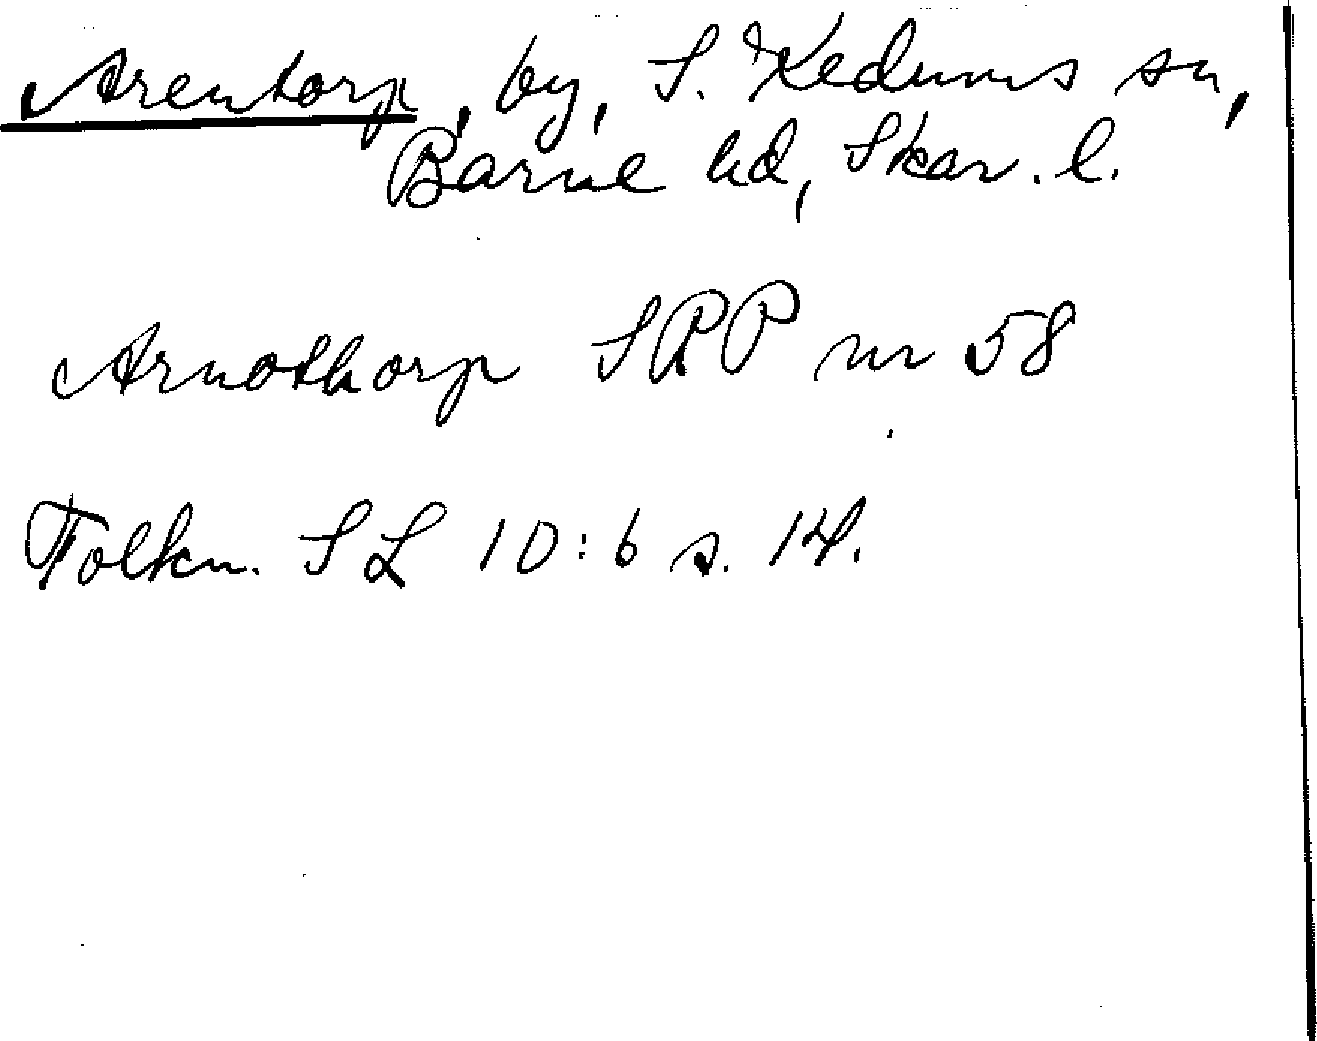 Arentorp, by, S. Kedums sn,
Barne hd, Skar. l.
Arnothorp SRP nr 58
Folkn. SL 10:6 s. 14.